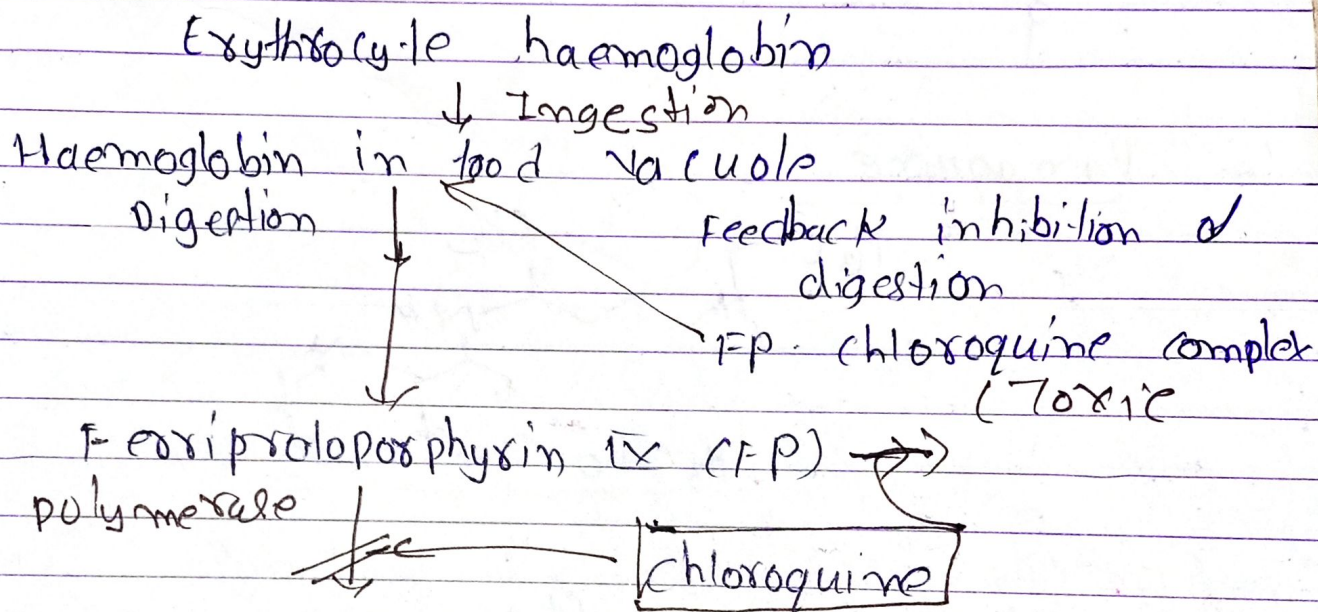 Erythrocyte haemoglobin
↓ Ingestion
Haemoglobin in food vacuole
Digention
Feedback inhibition of
digestion
FP. chloroquine complex
(Toxic
Ferriprotoporphyrin IX (FP) →
polymerase
chloroquine